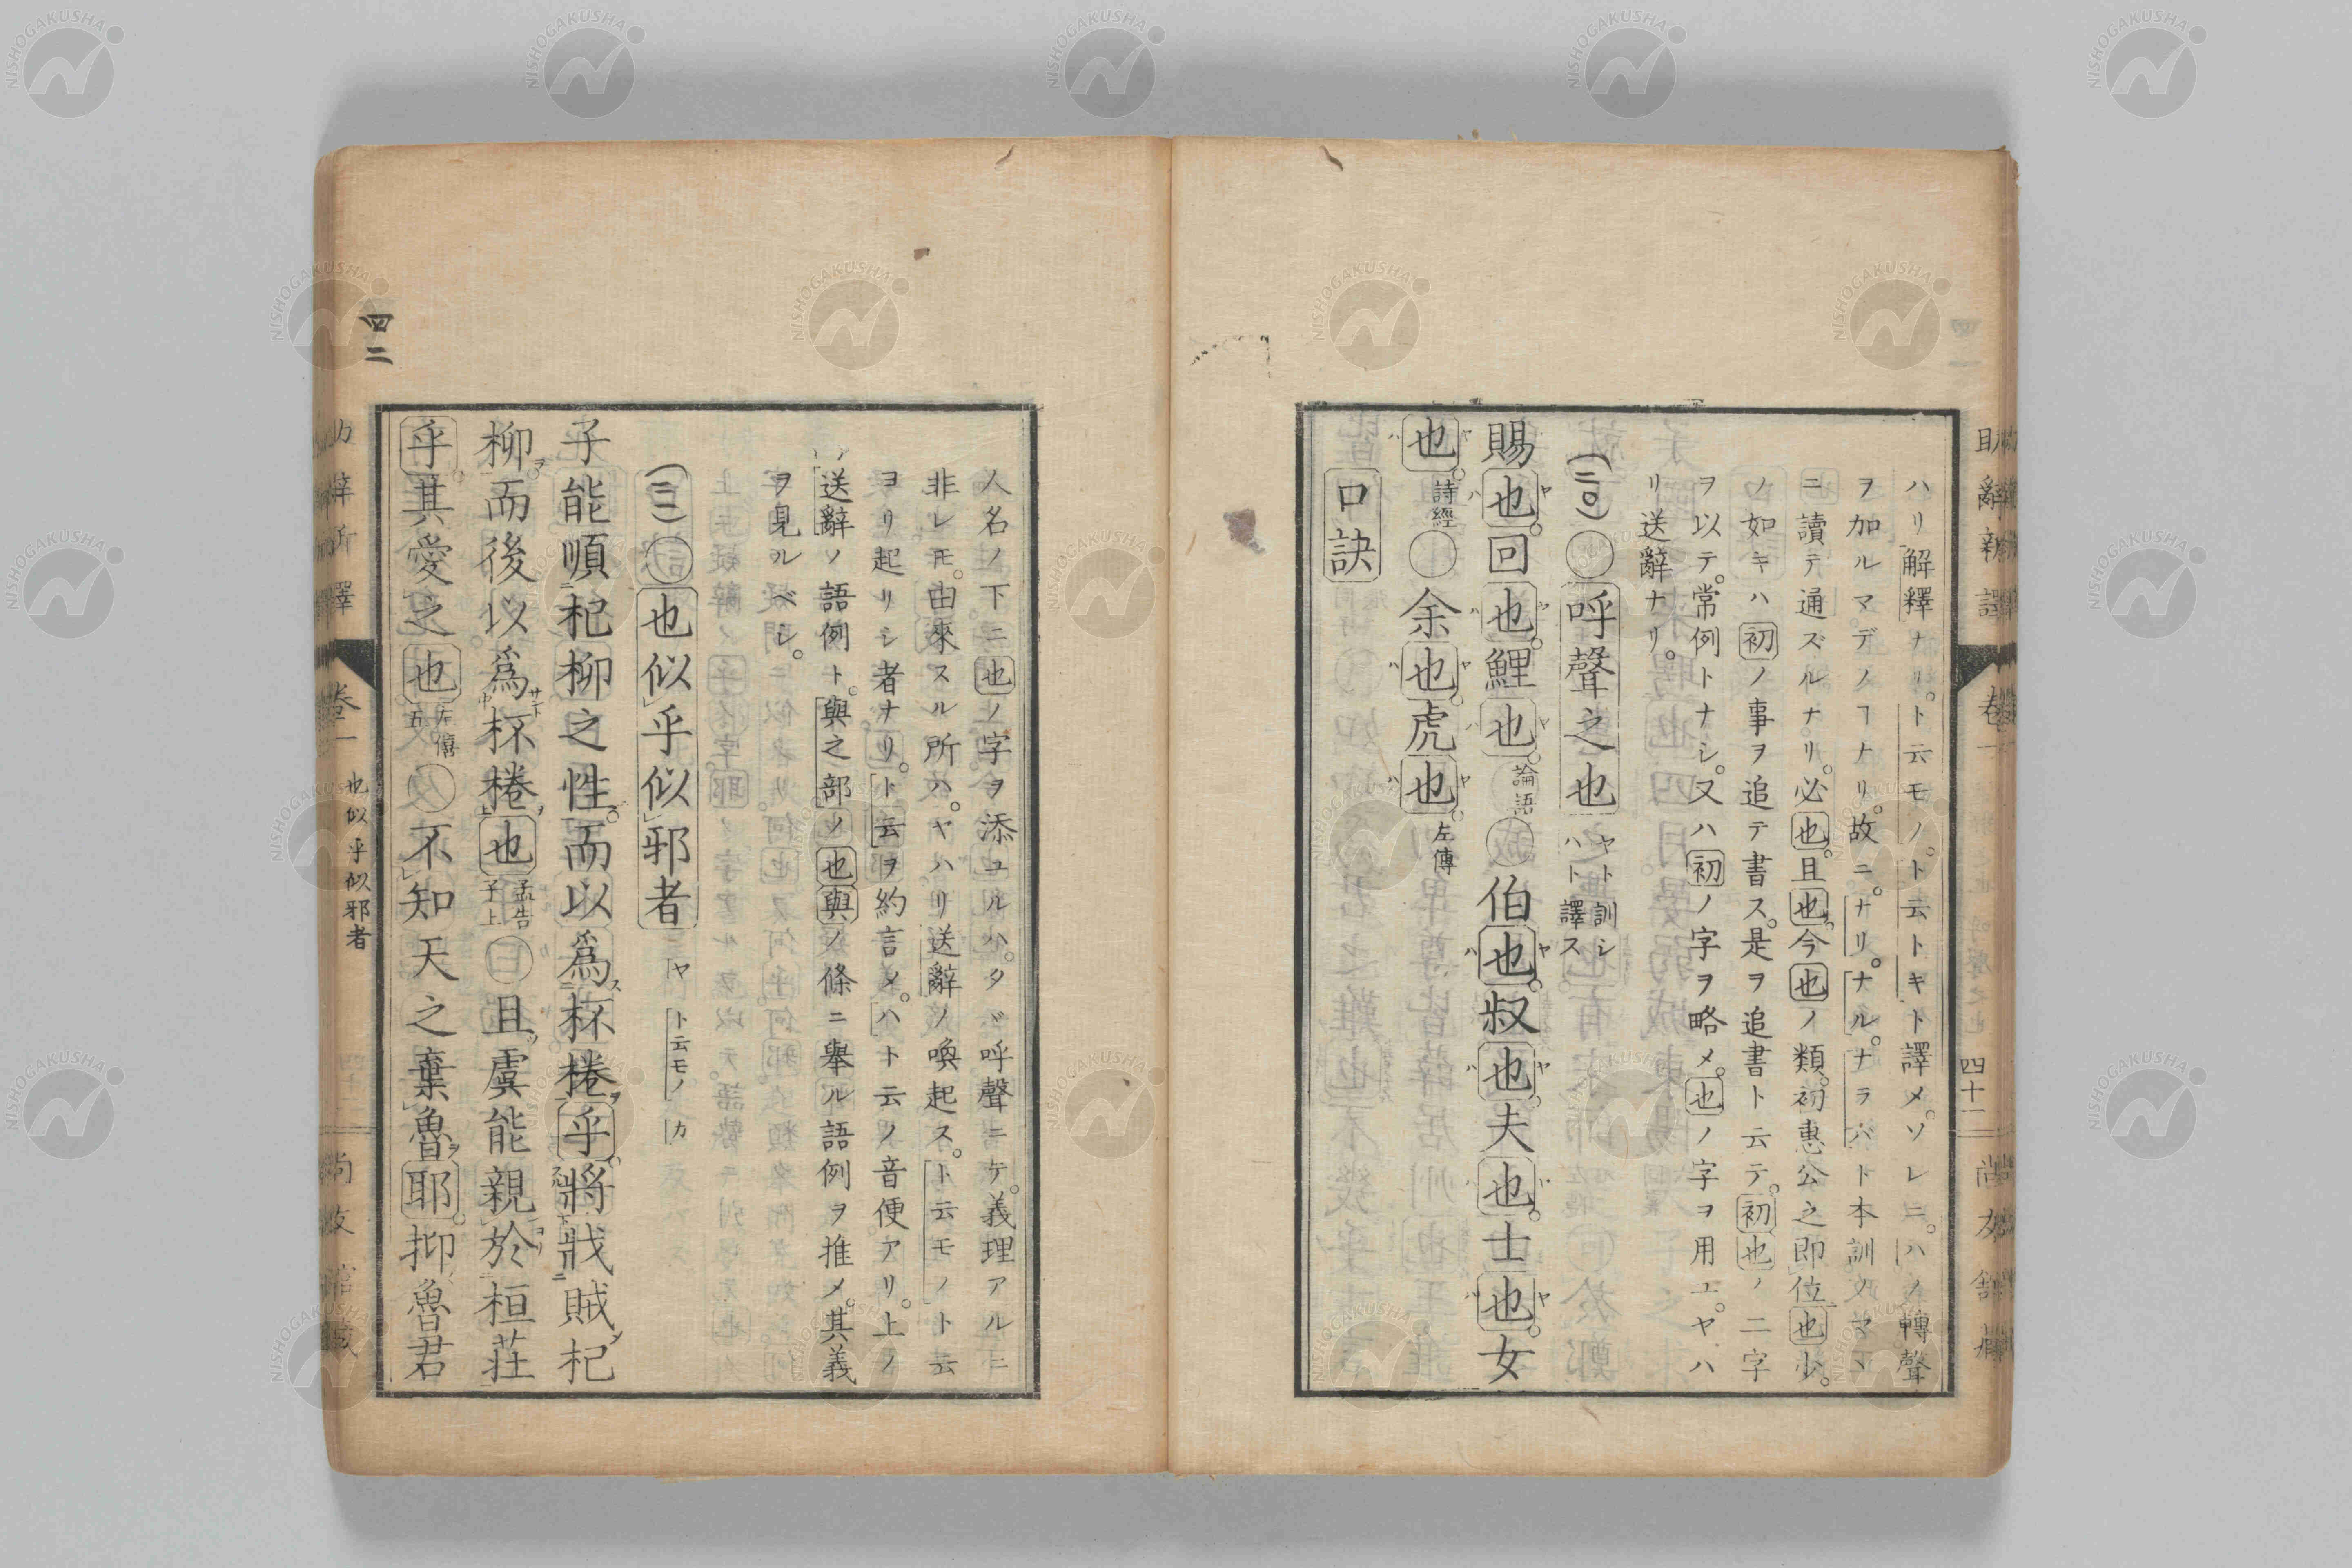 ハリ解釋ナリ。ト云モノ。ト云トキト譯メ。ソレニ。ハノ轉聲
ヲ加ルマデノヿナリ。故ニ。ナリ。ナル。ナラバト本訓ノマヽ
ニ讀テ通ズルナリ。必也。且也。今也ノ類。初惠公之即位也少。
ノ如キハ初ノ事ヲ追テ書ス。是ヲ追書ト云テ。初也ノ二字
ヲ以テ。常例トナシ。又ハ初ノ字ヲ略メ。也ノ字ヲ用エ。ヤハ
リ送辭ナリ。
(二〇)○呼聲之也 ヤト訓シ
ハト譯ス
賜也。回也。鯉也。論語○伯也。叔也。夫也。士也。女
也。詩經○余也。虎也。左傳
口訣
助辭新譯 卷一 四十二 尚友舘藏
人名ノ下ニ也ノ字ヲ添ユルハ。タヾ呼聲ニテ。義理アルニ
非レモ。由來スル所ハ。ヤハリ送辭ノ喚起ス。ト云モノト云
ヨリ起リシ者ナリ。ト云ヲ約言メ。ハト云ノ音便アリ。上ノ
送辭ノ語例ト。與之部ノ也與ノ條ニ舉ル語例ヲ推メ。其義
ヲ見ルベシ。
(二一)○也似乎似邪者 ヤ ト云モノ カ
子能順杞柳之性。而以爲杯棬乎。將戕賊杞
柳。而後以爲杯棬也 孟告
子上○且虞能親於桓莊
乎。其愛之也 左僖
五○不知天之棄魯耶。抑魯君
卷一 也似乎似邪者
四二
NISHOGAKUSHA